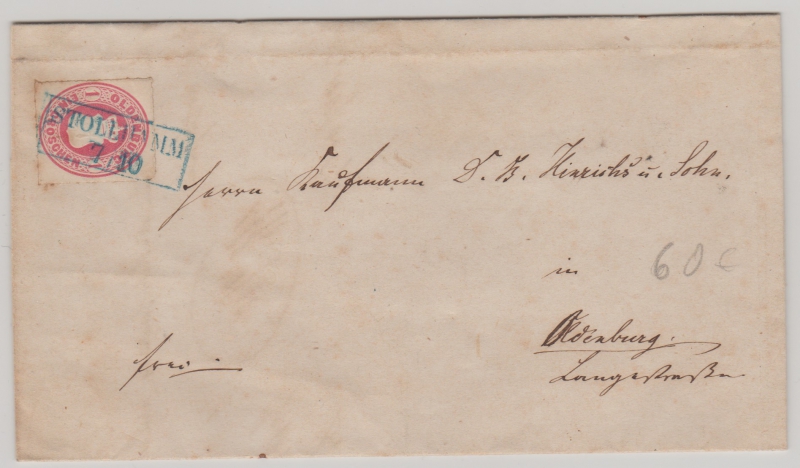 TOLLHAMM
7/10
OLDENB
1
GROSCHEN
Herrn Kaufmann D. B. Hinrichs u. Sohn.
in
60 €
Oldenburg.
Langestraße
frei